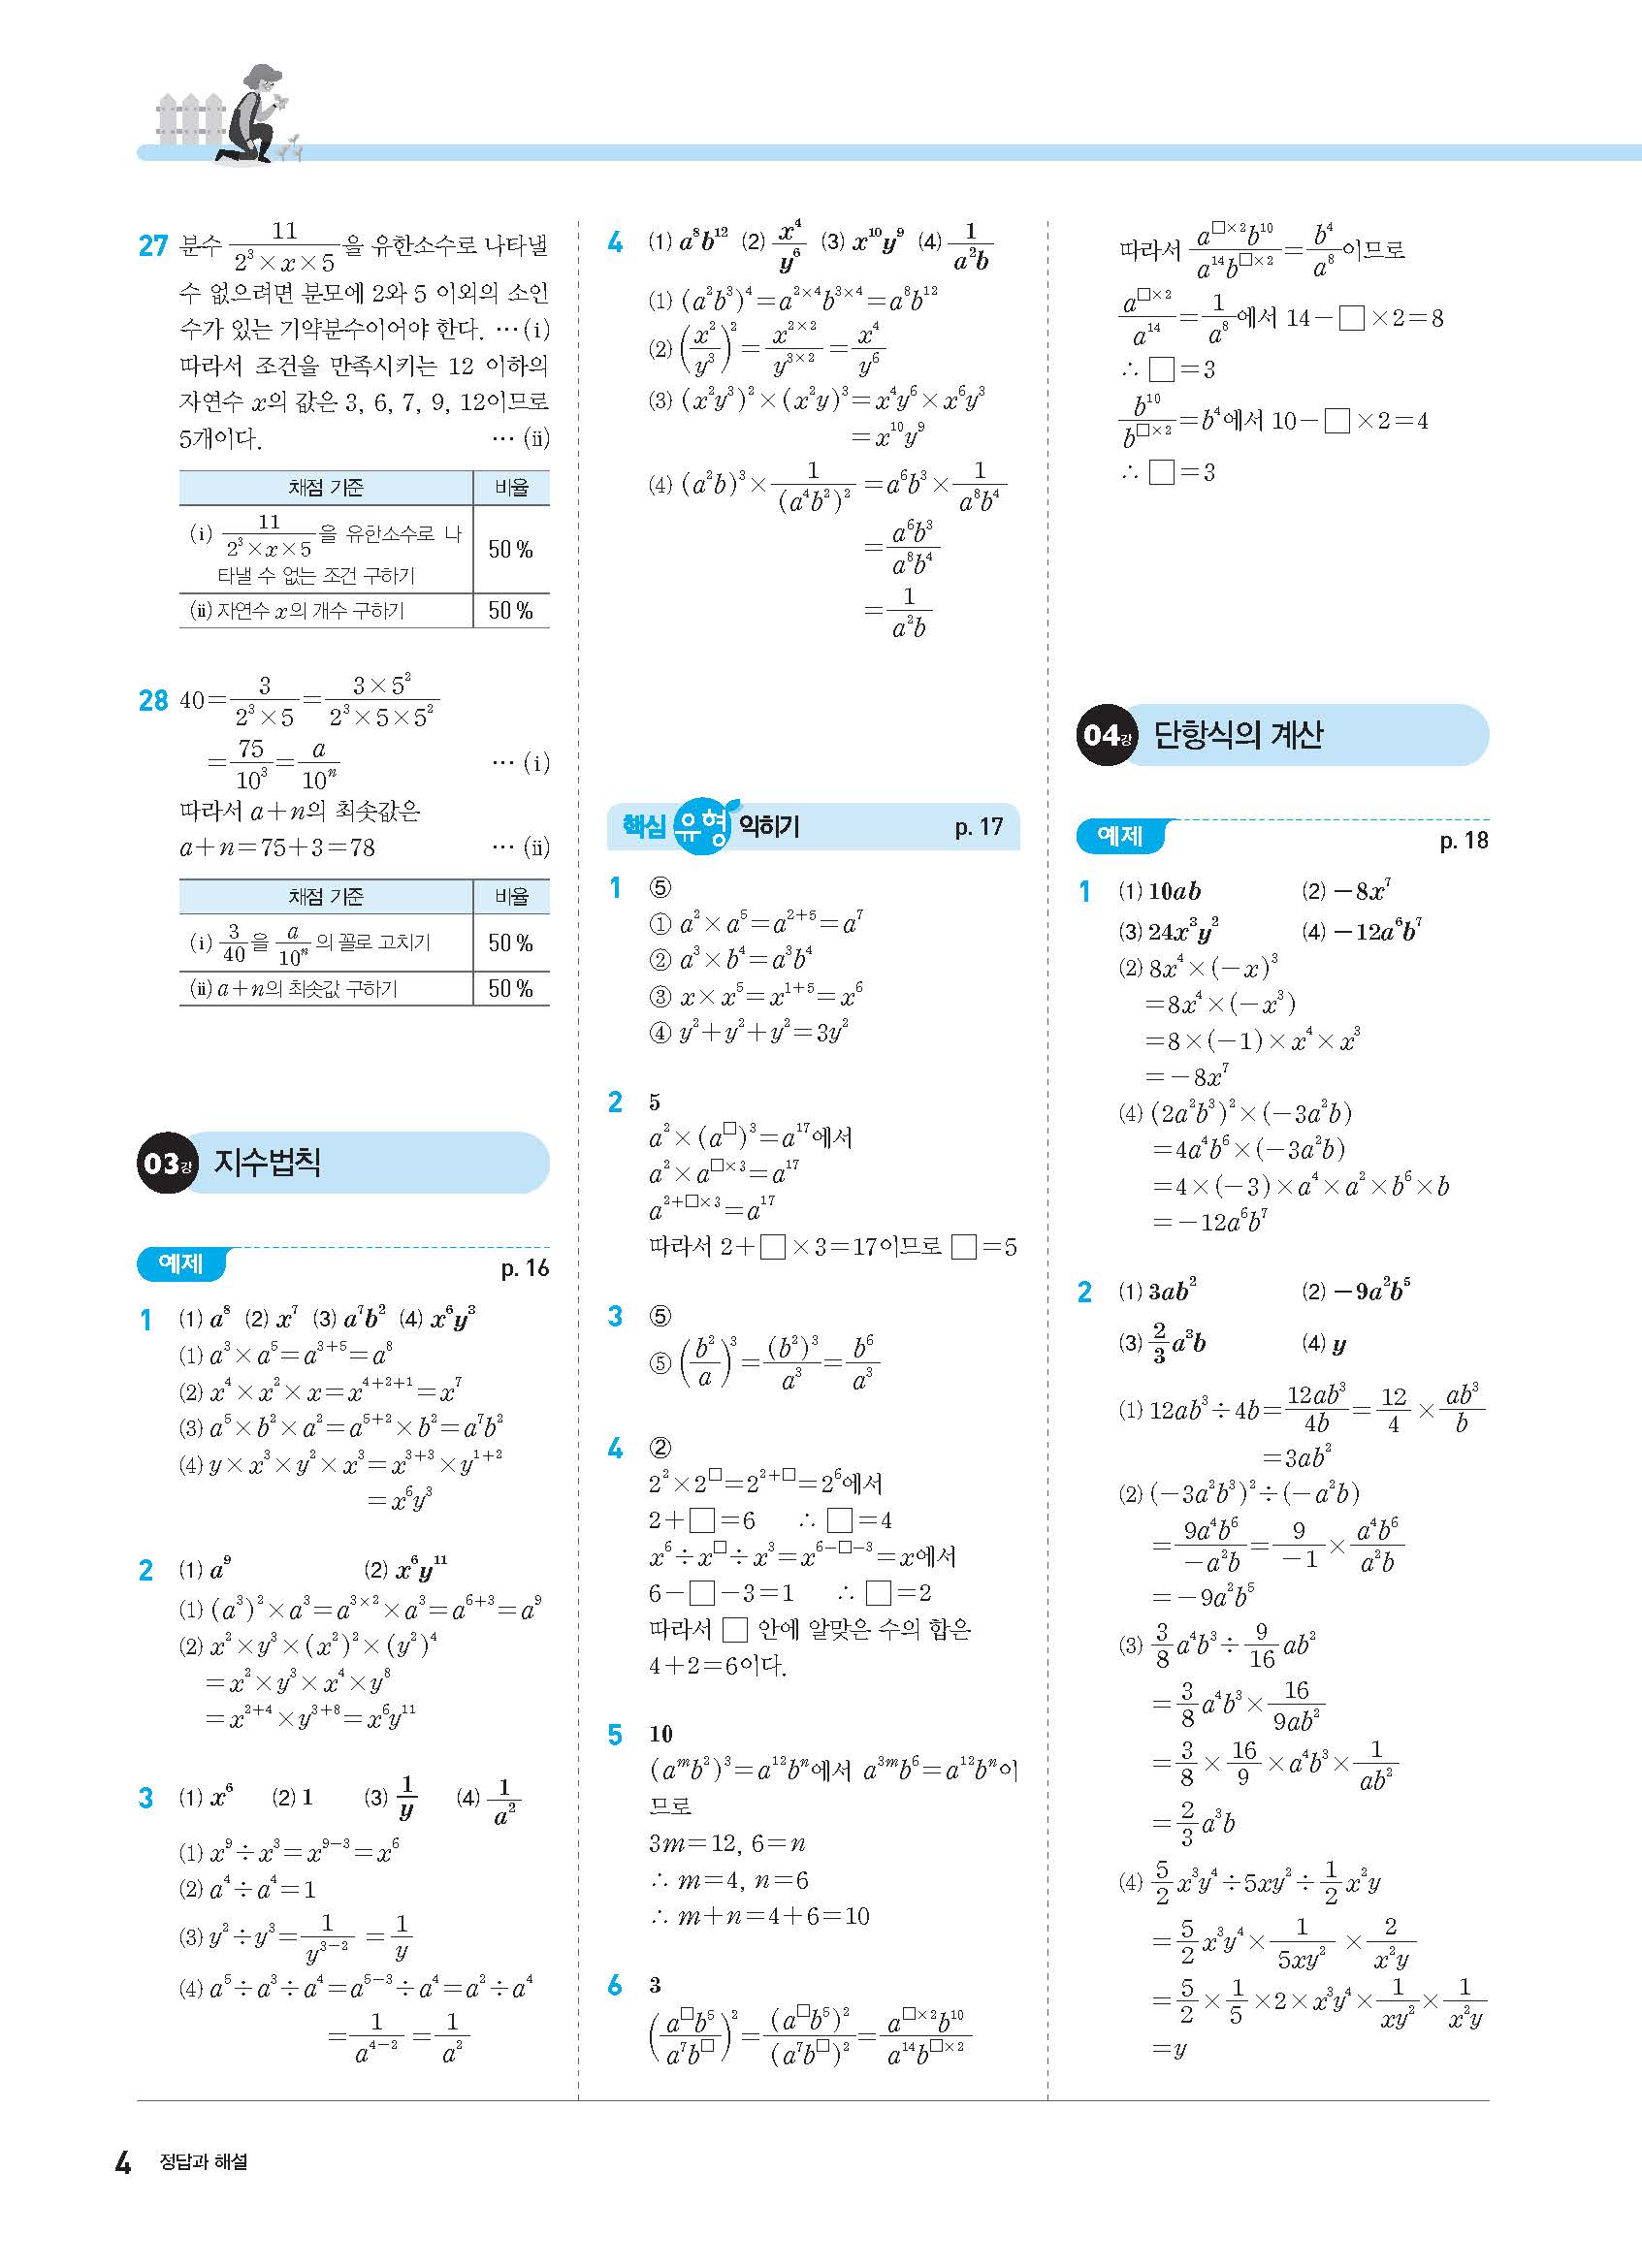 27 분수 11/(2³×x×5)을 유한소수로 나타낼
수 없으려면 분모에 2와 5 이외의 소인
수가 있는 기약분수이어야 한다. …(ⅰ)
따라서 조건을 만족시키는 12 이하의
자연수 x의 값은 3, 6, 7, 9, 12이므로
5개이다. …(ⅱ)
채점 기준 비율
(ⅰ) 11/(2³×x×5)을 유한소수로 나
타낼 수 없는 조건 구하기 50 %
(ⅱ) 자연수 x의 개수 구하기 50 %
28 40=3/(2³×5)=(3×5²)/(2³×5×5²)
=75/10³=a/10ⁿ …(ⅰ)
따라서 a+n의 최솟값은
a+n=75+3=78 …(ⅱ)
채점 기준 비율
(ⅰ) 3/40을 a/10ⁿ의 꼴로 고치기 50 %
(ⅱ) a+n의 최솟값 구하기 50 %
03강 지수법칙
예제 p. 16
1 (1) a⁸ (2) x⁷ (3) a⁷b² (4) x⁶y³
(1) a³×a⁵=a³⁺⁵=a⁸
(2) x⁴×x²×x=x⁴⁺²⁺¹=x⁷
(3) a⁵×b²×a²=a⁵⁺²×b²=a⁷b²
(4) y×x³×y²×x³=x³⁺³×y¹⁺²
=x⁶y³
2 (1) a⁹ (2) x⁶y¹¹
(1) (a³)²×a³=a^(3×2)×a³=a⁶⁺³=a⁹
(2) x²×y³×(x²)²×(y²)⁴
=x²×y³×x⁴×y⁸
=x²⁺⁴×y³⁺⁸=x⁶y¹¹
3 (1) x⁶ (2) 1 (3) 1/y (4) 1/a²
(1) x⁹÷x³=x⁹⁻³=x⁶
(2) a⁴÷a⁴=1
(3) y²÷y³=1/y³⁻²=1/y
(4) a⁵÷a³÷a⁴=a⁵⁻³÷a⁴=a²÷a⁴
=1/a⁴⁻²=1/a²
4 (1) a⁸b¹² (2) x⁴/y⁶ (3) x¹⁰y⁹ (4) 1/(a²b)
(1) (a²b³)⁴=a^(2×4)b^(3×4)=a⁸b¹²
(2) (x²/y³)²=x^(2×2)/y^(3×2)=x⁴/y⁶
(3) (x²y³)²×(x²y)³=x⁴y⁶×x⁶y³
=x¹⁰y⁹
(4) (a²b)³×1/(a⁴b²)²=a⁶b³×1/(a⁸b⁴)
=a⁶b³/(a⁸b⁴)
=1/(a²b)
핵심 유형 익히기 p. 17
1 ⑤
① a²×a⁵=a²⁺⁵=a⁷
② a³×b⁴=a³b⁴
③ x×x⁵=x¹⁺⁵=x⁶
④ y²+y²+y²=3y²
2 5
a²×(a^□)³=a¹⁷에서
a²×a^(□×3)=a¹⁷
a^(2+□×3)=a¹⁷
따라서 2+□×3=17이므로 □=5
3 ⑤
⑤ (b²/a)³=(b²)³/a³=b⁶/a³
4 ②
2²×2^□=2^(2+□)=2⁶에서
2+□=6 ∴ □=4
x⁶÷x^□÷x³=x^(6-□-3)=x에서
6-□-3=1 ∴ □=2
따라서 □ 안에 알맞은 수의 합은
4+2=6이다.
5 10
(aᵐb²)³=a¹²bⁿ에서 a³ᵐb⁶=a¹²bⁿ이
므로
3m=12, 6=n
∴ m=4, n=6
∴ m+n=4+6=10
6 3
(a^□b⁵/(a⁷b^□))²=(a^□b⁵)²/(a⁷b^□)²=a^(□×2)b¹⁰/(a¹⁴b^(□×2))
따라서 a^(□×2)b¹⁰/(a¹⁴b^(□×2))=b⁴/a⁸이므로
a^(□×2)/a¹⁴=1/a⁸에서 14-□×2=8
∴ □=3
b¹⁰/b^(□×2)=b⁴에서 10-□×2=4
∴ □=3
04강 단항식의 계산
예제 p. 18
1 (1) 10ab (2) -8x⁷
(3) 24x³y² (4) -12a⁶b⁷
(2) 8x⁴×(-x)³
=8x⁴×(-x³)
=8×(-1)×x⁴×x³
=-8x⁷
(4) (2a²b³)²×(-3a²b)
=4a⁴b⁶×(-3a²b)
=4×(-3)×a⁴×a²×b⁶×b
=-12a⁶b⁷
2 (1) 3ab² (2) -9a²b⁵
(3) 2/3 a³b (4) y
(1) 12ab³÷4b=12ab³/4b=12/4×ab³/b
=3ab²
(2) (-3a²b³)²÷(-a²b)
=9a⁴b⁶/(-a²b)=9/(-1)×a⁴b⁶/(a²b)
=-9a²b⁵
(3) 3/8 a⁴b³÷9/16 ab²
=3/8 a⁴b³×16/(9ab²)
=3/8×16/9×a⁴b³×1/(ab²)
=2/3 a³b
(4) 5/2 x³y⁴÷5xy²÷1/2 x²y
=5/2 x³y⁴×1/(5xy²)×2/(x²y)
=5/2×1/5×2×x³y⁴×1/(xy²)×1/(x²y)
=y
4 정답과 해설